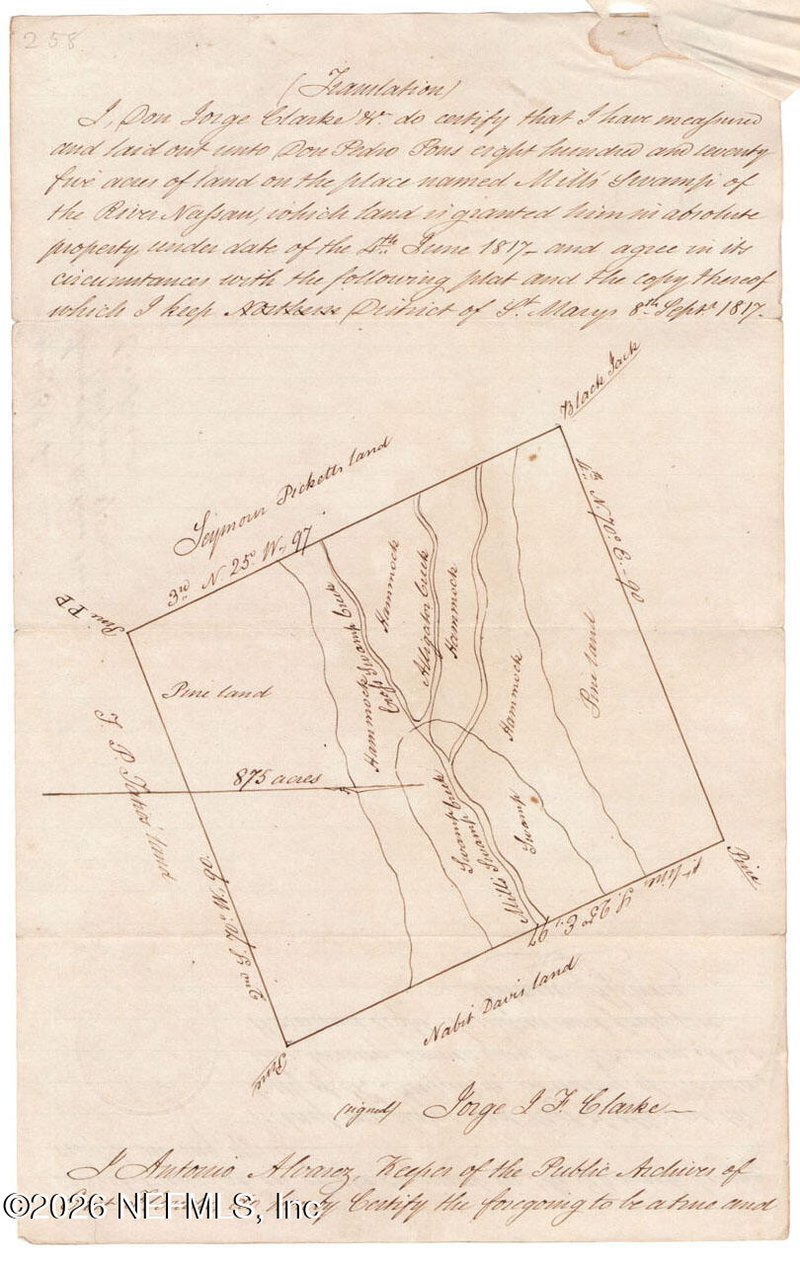 258
(Translation)
I, Don Jorge Clarke &c. do certify that I have measured
and laid out unto Don Pedro Pons eight hundred and seventy
five acres of land on the place named Mills Swamp of
the River Nassau, which land is granted him in absolute
property, under date of the 4th June 1817 - and agree in its
circumstances with the following plat and the copy thereof
which I keep Northern District of St. Marys 8th Septr 1817.
Black Jack
Seymour Picketts land
3rd N. 25° W - 97
Pine PP
4th N. 70° E - 90
Hammock
Hammock
Swamp Creek
Hammock
Alligator Creek
Hammock
Hammock
Pine land
Pine land
875 acres
land
Swamp Creek
Mills Swamp
Swamp
2nd S. 70° W. 90
1st line S. 25° E. 97
Pine
Nabit Davis land
Pine
(signed) Jorge J F. Clarke
I Antonio Alvarez, Keeper of the Public Archives of
©2026 NEFMLS, Inc
hereby Certify the foregoing to be a true and